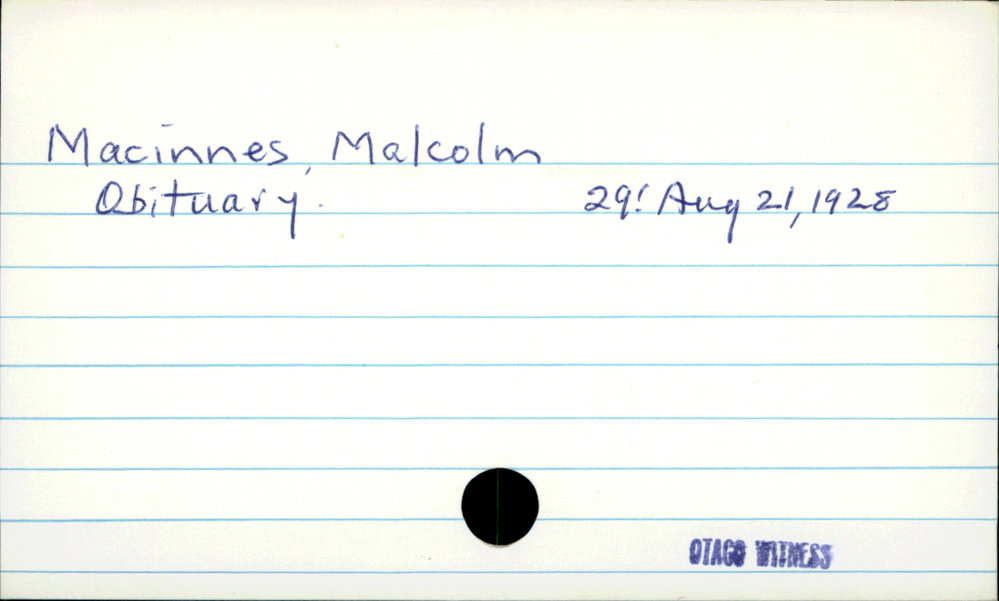 Macinnes, Malcolm
Obituary. 29: Aug 21, 1928
OTAGO WITNESS